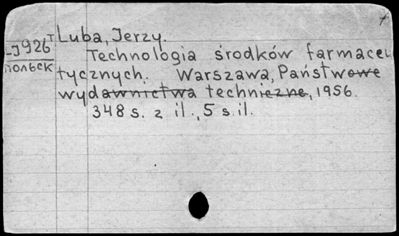 Luba, Jerzy.
J926
польск
Technologia środków farmaceu
tycznych. Warszawa, Państwowe
wydawnictwa techniczne, 1956.
348 s. z il., 5 s. il.